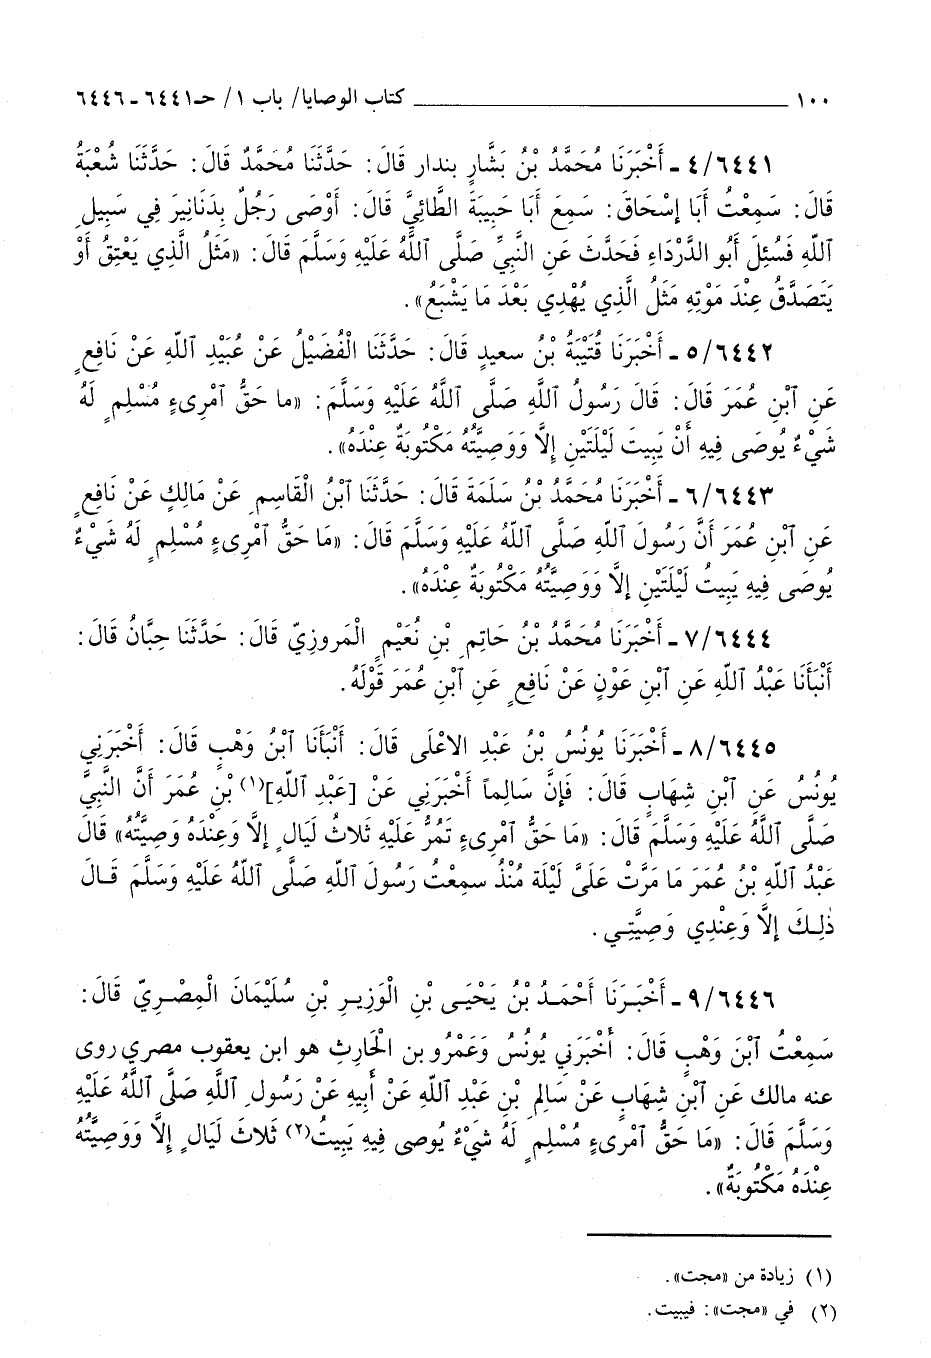 ١٠٠ كتاب الوصايا/ باب ١/ حـ٦٤٤١ ـ ٦٤٤٦
٤/٦٤٤١ ـ أَخْبَرَنَا مُحَمَّدُ بْنُ بَشَّارٍ بندار قَالَ: حَدَّثَنَا مُحَمَّدٌ قَالَ: حَدَّثَنَا شُعْبَةُ
قَالَ: سَمِعْتُ أَبَا إِسْحَاقَ: سَمِعَ أَبَا حَبِيبَةَ الطَّائِيَّ قَالَ: أَوْصَى رَجُلٌ بِدَنَانِيرَ فِي سَبِيلِ
ٱللَّهِ فَسُئِلَ أَبُو الدَّرْدَاءِ فَحَدَّثَ عَنِ النَّبِيِّ صَلَّى ٱللَّهُ عَلَيْهِ وَسَلَّمَ قَالَ: «مَثَلُ الَّذِي يَعْتِقُ أَوْ
يَتَصَدَّقُ عِنْدَ مَوْتِهِ مَثَلُ الَّذِي يُهْدِي بَعْدَ مَا يَشْبَعُ».
٥/٦٤٤٢ ـ أَخْبَرَنَا قُتَيْبَةُ بْنُ سعيدٍ قَالَ: حَدَّثَنَا الْفُضَيْلُ عَنْ عُبَيْدِ ٱللَّهِ عَنْ نَافِعٍ
عَنِ ٱبْنِ عُمَرَ قَالَ: قَالَ رَسُولُ ٱللَّهِ صَلَّى ٱللَّهُ عَلَيْهِ وَسَلَّمَ: «ما حَقُّ ٱمْرِىءٍ مُسْلِمٍ لَهُ
شَيْءٌ يُوصَى فِيهِ أَنْ يَبِيتَ لَيْلَتَيْنِ إِلَّا وَوَصِيَّتُهُ مَكْتُوبَةٌ عِنْدَهُ».
٦/٦٤٤٣ ـ أَخْبَرَنَا مُحَمَّدُ بْنُ سَلَمَةَ قَالَ: حَدَّثَنَا ٱبْنُ الْقَاسِمِ عَنْ مَالِكٍ عَنْ نَافِعٍ
عَنِ ٱبْنِ عُمَرَ أَنَّ رَسُولَ ٱللَّهِ صَلَّى ٱللَّهُ عَلَيْهِ وَسَلَّمَ قَالَ: «مَا حَقُّ ٱمْرِىءٍ مُسْلِمٍ لَهُ شَيْءٌ
يُوصَى فِيهِ يَبِيتُ لَيْلَتَيْنِ إِلَّا وَوَصِيَّتُهُ مَكْتُوبَةٌ عِنْدَهُ».
٧/٦٤٤٤ ـ أَخْبَرَنَا مُحَمَّدُ بْنُ حَاتِمِ بْنِ نُعَيْمٍ الْمَروزِيّ قَالَ: حَدَّثَنَا حِبَّانُ قَالَ:
أَنْبَأَنَا عَبْدُ ٱللَّهِ عَنِ ٱبْنِ عَوْنٍ عَنْ نَافِعٍ عَنِ ٱبْنِ عُمَرَ قَوْلَهُ.
٨/٦٤٤٥ ـ أَخْبَرَنَا يُونُسُ بْنُ عَبْدِ الاعْلَى قَالَ: أَنْبَأَنَا ٱبْنُ وَهْبٍ قَالَ: أَخْبَرَنِي
يُونُسُ عَنِ ٱبْنِ شِهَابٍ قَالَ: فَإِنَّ سَالِماً أَخْبَرَنِي عَنْ [عَبْدِ ٱللَّهِ](١) بْنِ عُمَرَ أَنَّ النَّبِيَّ
صَلَّى ٱللَّهُ عَلَيْهِ وَسَلَّمَ قَالَ: «مَا حَقُّ ٱمْرِىءٍ تَمُرُّ عَلَيْهِ ثَلاثُ لَيَالٍ إِلَّا وَعِنْدَهُ وَصِيَّتُهُ» قَالَ
عَبْدُ ٱللَّهِ بْنُ عُمَرَ مَا مَرَّتْ عَلَيَّ لَيْلَة مُنْذُ سمِعْتُ رَسُولَ ٱللَّهِ صَلَّى ٱللَّهُ عَلَيْهِ وَسَلَّمَ قَالَ
ذٰلِكَ إِلَّا وَعِنْدِي وَصِيَّتِي.
٩/٦٤٤٦ ـ أَخْبَرَنَا أَحْمَدُ بْنُ يَحْيَى بْنِ الْوَزِيرِ بْنِ سُلَيْمَانَ الْمِصْرِيّ قَالَ:
سَمِعْتُ ٱبْنَ وَهْبٍ قَالَ: أَخْبَرَنِي يُونُسُ وَعَمْرُو بن الْحَارِثِ هو ابن يعقوب مصري روى
عنه مالك عَنِ ٱبْنِ شِهَابٍ عَنْ سَالِمِ بْنِ عَبْدِ ٱللَّهِ عَنْ أَبِيهِ عَنْ رَسُولِ ٱللَّهِ صَلَّى ٱللَّهُ عَلَيْهِ
وَسَلَّمَ قَالَ: «مَا حَقُّ ٱمْرِىءٍ مُسْلِمٍ لَهُ شَيْءٌ يُوصى فِيهِ يَبِيتُ(٢) ثَلاثَ لَيَالٍ إِلَّا وَوَصِيَّتُهُ
عِنْدَهُ مَكْتُوبَةٌ».
(١) زيادة من «مجت».
(٢) في «مجت»: فيبيت.